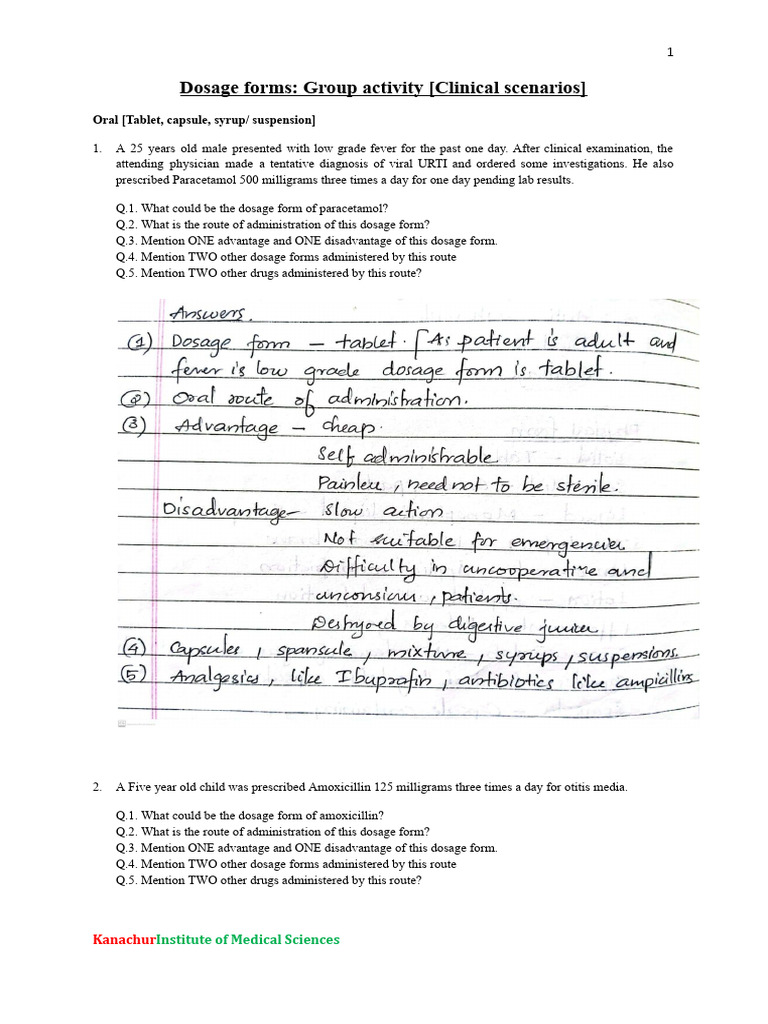 1
Dosage forms: Group activity [Clinical scenarios]
Oral [Tablet, capsule, syrup/ suspension]
1. A 25 years old male presented with low grade fever for the past one day. After clinical examination, the
attending physician made a tentative diagnosis of viral URTI and ordered some investigations. He also
prescribed Paracetamol 500 milligrams three times a day for one day pending lab results.
Q.1. What could be the dosage form of paracetamol?
Q.2. What is the route of administration of this dosage form?
Q.3. Mention ONE advantage and ONE disadvantage of this dosage form.
Q.4. Mention TWO other dosage forms administered by this route
Q.5. Mention TWO other drugs administered by this route?
Answers.
(1) Dosage form – tablet. [As patient is adult and
fever is low grade dosage form is tablet.
(2) Oral route of administration.
(3) Advantage – cheap.
Self administrable
Painless, need not to be sterile.
Disadvantage – slow action
Not suitable for emergencies
Difficulty in uncooperative and
unconsious, patients.
Destroyed by digestive juices
(4) Capsules, spansule, mixture, syrups, suspensions.
(5) Analgesics, like Ibuprofin, antibiotics like ampicillins
2. A Five year old child was prescribed Amoxicillin 125 milligrams three times a day for otitis media.
Q.1. What could be the dosage form of amoxicillin?
Q.2. What is the route of administration of this dosage form?
Q.3. Mention ONE advantage and ONE disadvantage of this dosage form.
Q.4. Mention TWO other dosage forms administered by this route
Q.5. Mention TWO other drugs administered by this route?
KanachurInstitute of Medical Sciences